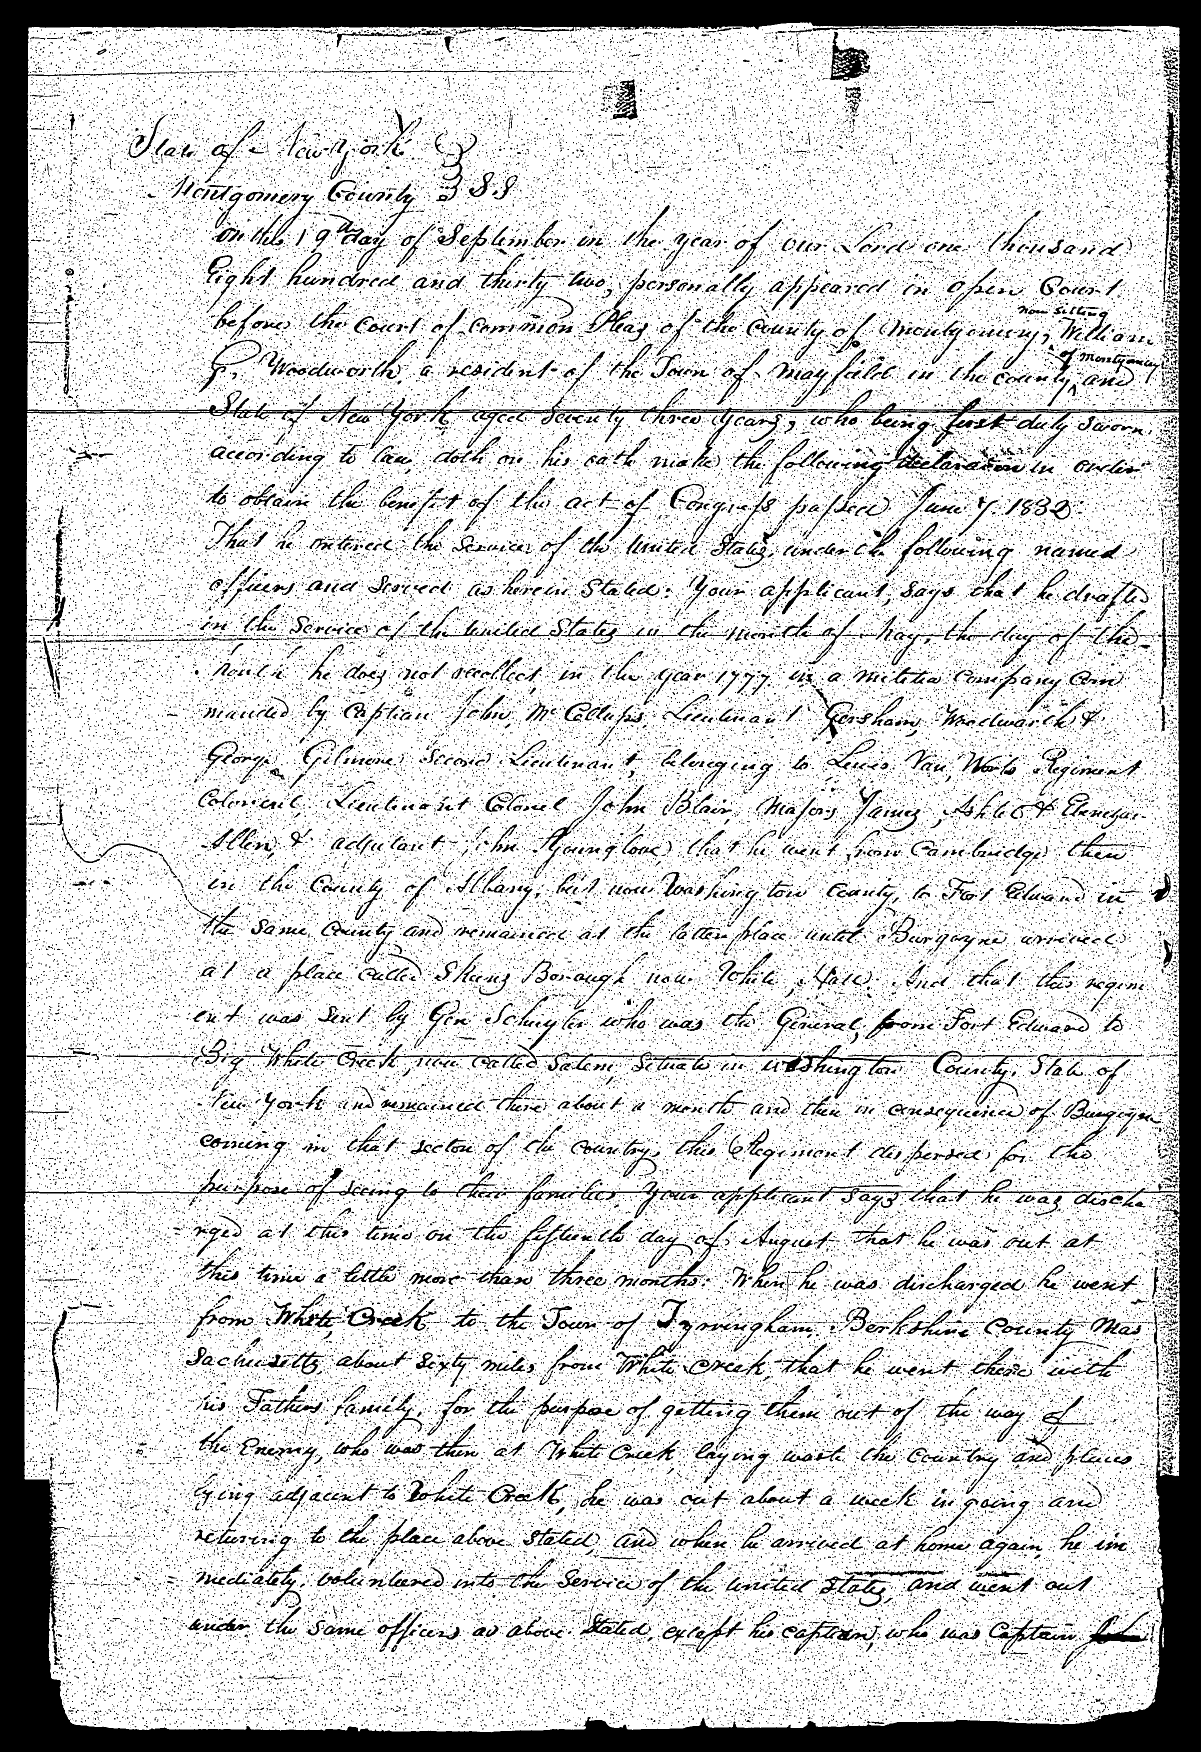 State of New York
Montgomery County } SS
On this 19th day of September in the year of our Lord one thousand
Eight hundred and thirty two, personally appeared in open Court
before the court of common Pleas of the county of Montgomery, now sitting William
G. Woodworth, a resident of the Town of Mayfield in the county of Montgomery and
State of New York aged seventy three years, who being first duly sworn
according to law, doth on his oath make the following declaration in order
to obtain the benefit of the act of Congress passed June 7. 1832.
That he entered the service of the United States, under the following named
officers and served as herein stated: Your applicant, says that he drafted
in the service of the United States in the month of May, the day of the
month he does not recollect, in the year 1777 in a militia company com
manded by Captian John, Mc Collops, Lieutenant Gersham, Woodworth &
George, Gilmore second Lieutenant, belonging to Lewis Van, Worts Regiment
Colonenl, Lieutenant Colonel John Blair, Majors James, Ashle & Ebenezar
Allen, & adjutant John Younglove) that he went from Cambridge then
in the County of Albany, but now Washington county, to Fort Edward in
the same county and remained at the latter place until Burgoyne arrived
at a place called Skeens Borough now White, Hall. And that this regim
ent was sent by Gen Schuyler who was the General, from Fort Edward to
Big White Creek, now called Salem, situate in Washington County, State of
New York and remained there about a month and then in consequence of Burgoyne
coming in that section of the country, this Regiment dispersed for the
purpose of seeing to their families. Your applicant says that he was discha
rged at this time on the fifteenth day of August that he was out at
this time a little more than three months: When he was discharged he went
from White, Creek to the Town of Tyrvingham, Berkshire County Mas
sachusetts, about sixty miles from White creek, that he went there with
his Fathers family, for the purpose of getting them out of the way of
the Enemy, who was then at White Creek, laying waste the country and places
lying adjacent to White Creek, he was out about a week in going and
returning to the place above stated, and when he arrived at home again, he im
mediately, volunteered into the service of the United States, and went out
under the same officers as above stated, except his captian, who was Captain John